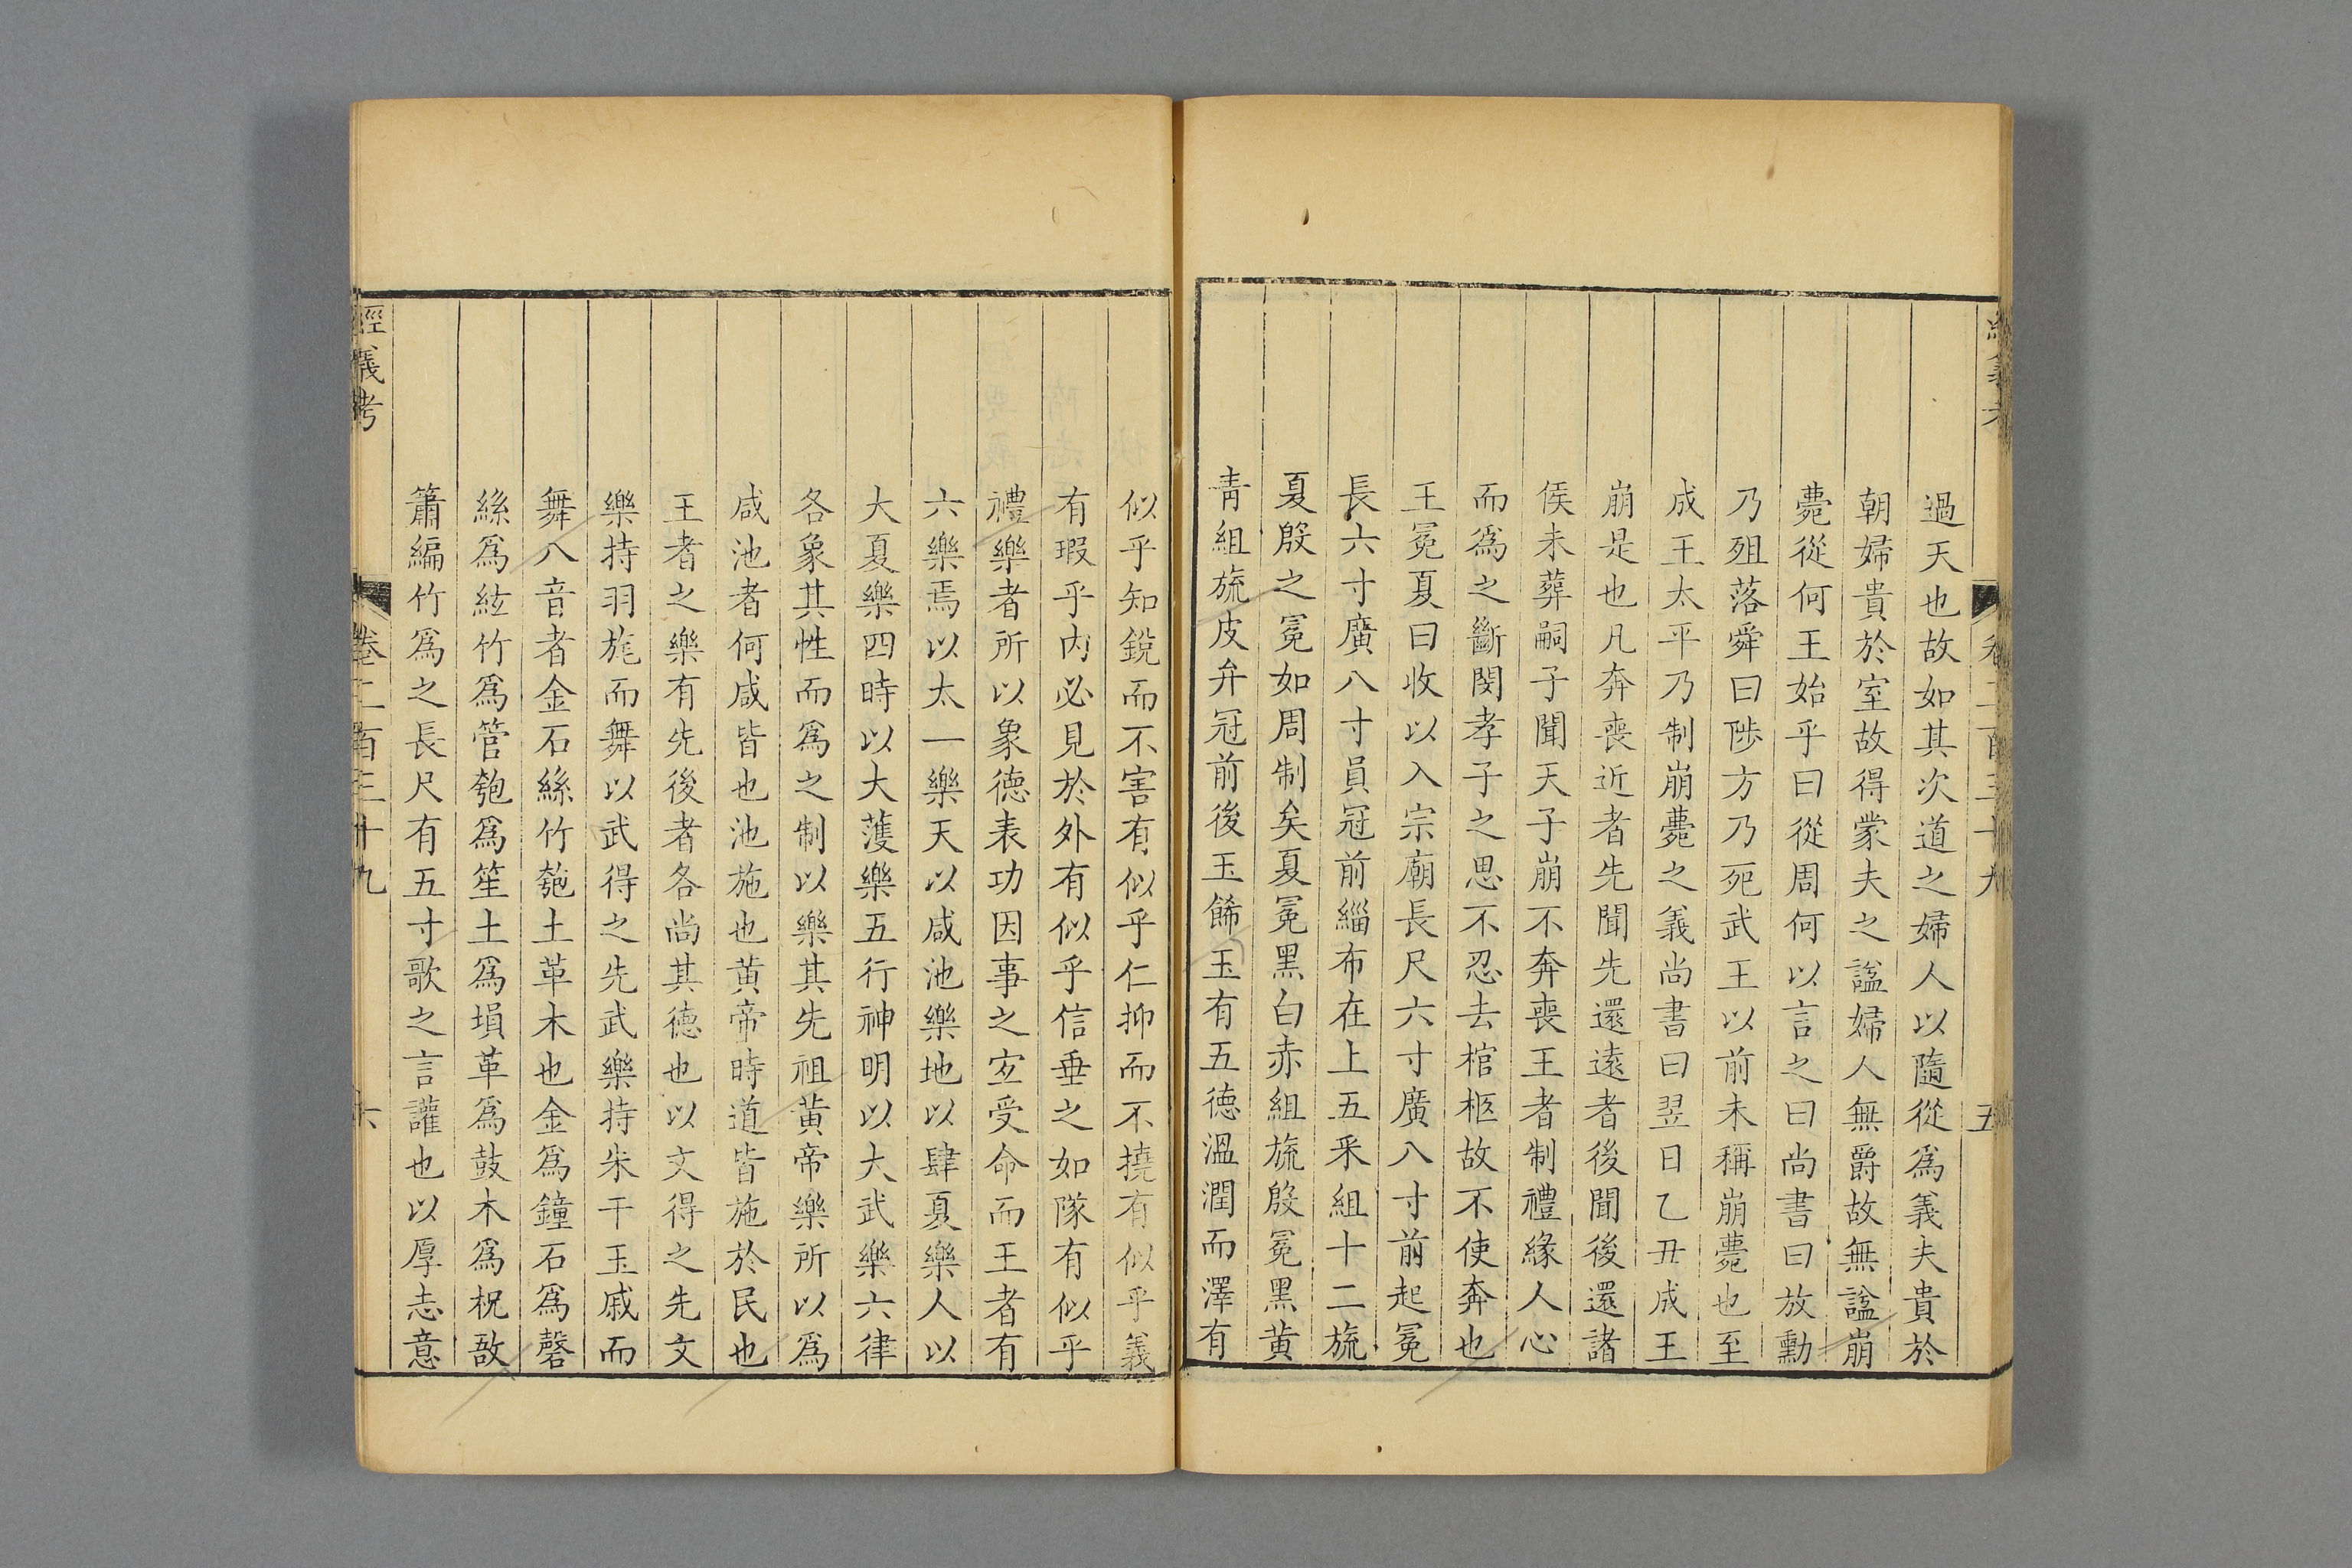 過天也故如其次道之婦人以隨從爲義夫貴於
朝婦貴於室故得蒙夫之諡婦人無爵故無諡崩
薨從何王始乎曰從周何以言之曰尚書曰放勳
乃殂落舜曰陟方乃死武王以前未稱崩薨也至
成王太平乃制崩薨之義尚書曰翌日乙丑成王
崩是也凡奔喪近者先聞先還遠者後聞後還諸
侯未葬嗣子聞天子崩不奔喪王者制禮緣人心
而爲之斷閔孝子之思不忍去棺柩故不使奔也
王冕夏曰收以入宗廟長尺六寸廣八寸前起冕
長六寸廣八寸員冠前緇布在上五采組十二旒
夏殷之冕如周制矣夏冕黑白赤組旒殷冕黑黄
青組旒皮弁冠前後玉餙玉有五德溫潤而澤有
似乎知銳而不害有似乎仁抑而不撓有似乎義
有瑕乎内必見於外有似乎信垂之如隊有似乎
禮樂者所以象德表功因事之宐受命而王者有
六樂焉以太一樂天以咸池樂地以肆夏樂人以
大夏樂四時以大濩樂五行神明以大武樂六律
各象其性而爲之制以樂其先祖黄帝樂所以爲
咸池者何咸皆也池施也黄帝時道皆施於民也
王者之樂有先後者各尚其德也以文得之先文
樂持羽旄而舞以武得之先武樂持朱干玉戚而
舞八音者金石絲竹匏土革木也金爲鐘石爲磬
絲爲絃竹爲管匏爲笙土爲塤革爲鼓木爲柷敔
簫編竹爲之長尺有五寸歌之言讙也以厚志意
經義考
卷二百三十九
六